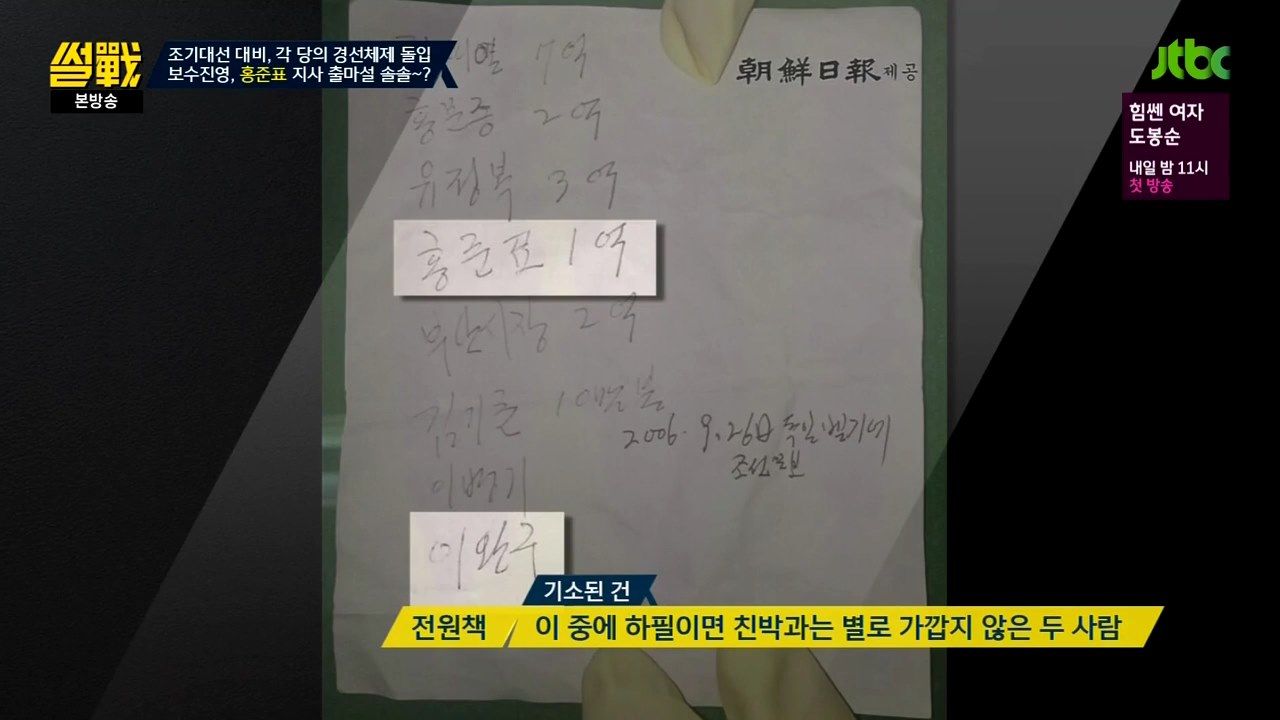 썰戰
본방송
조기대선 대비, 각 당의 경선체제 돌입
보수진영, 홍준표 지사 출마설 솔솔~?
jtbc
힘쎈 여자
도봉순
내일 밤 11시
첫 방송
朝鮮日報 제공
7억
홍문종 2억
유정복 3억
홍준표 1억
부산시장 2억
김기춘 10만불
2006. 9. 26日 독일 벨기에
조선일보
이병기
이완구
기소된 건
전원책 이 중에 하필이면 친박과는 별로 가깝지 않은 두 사람